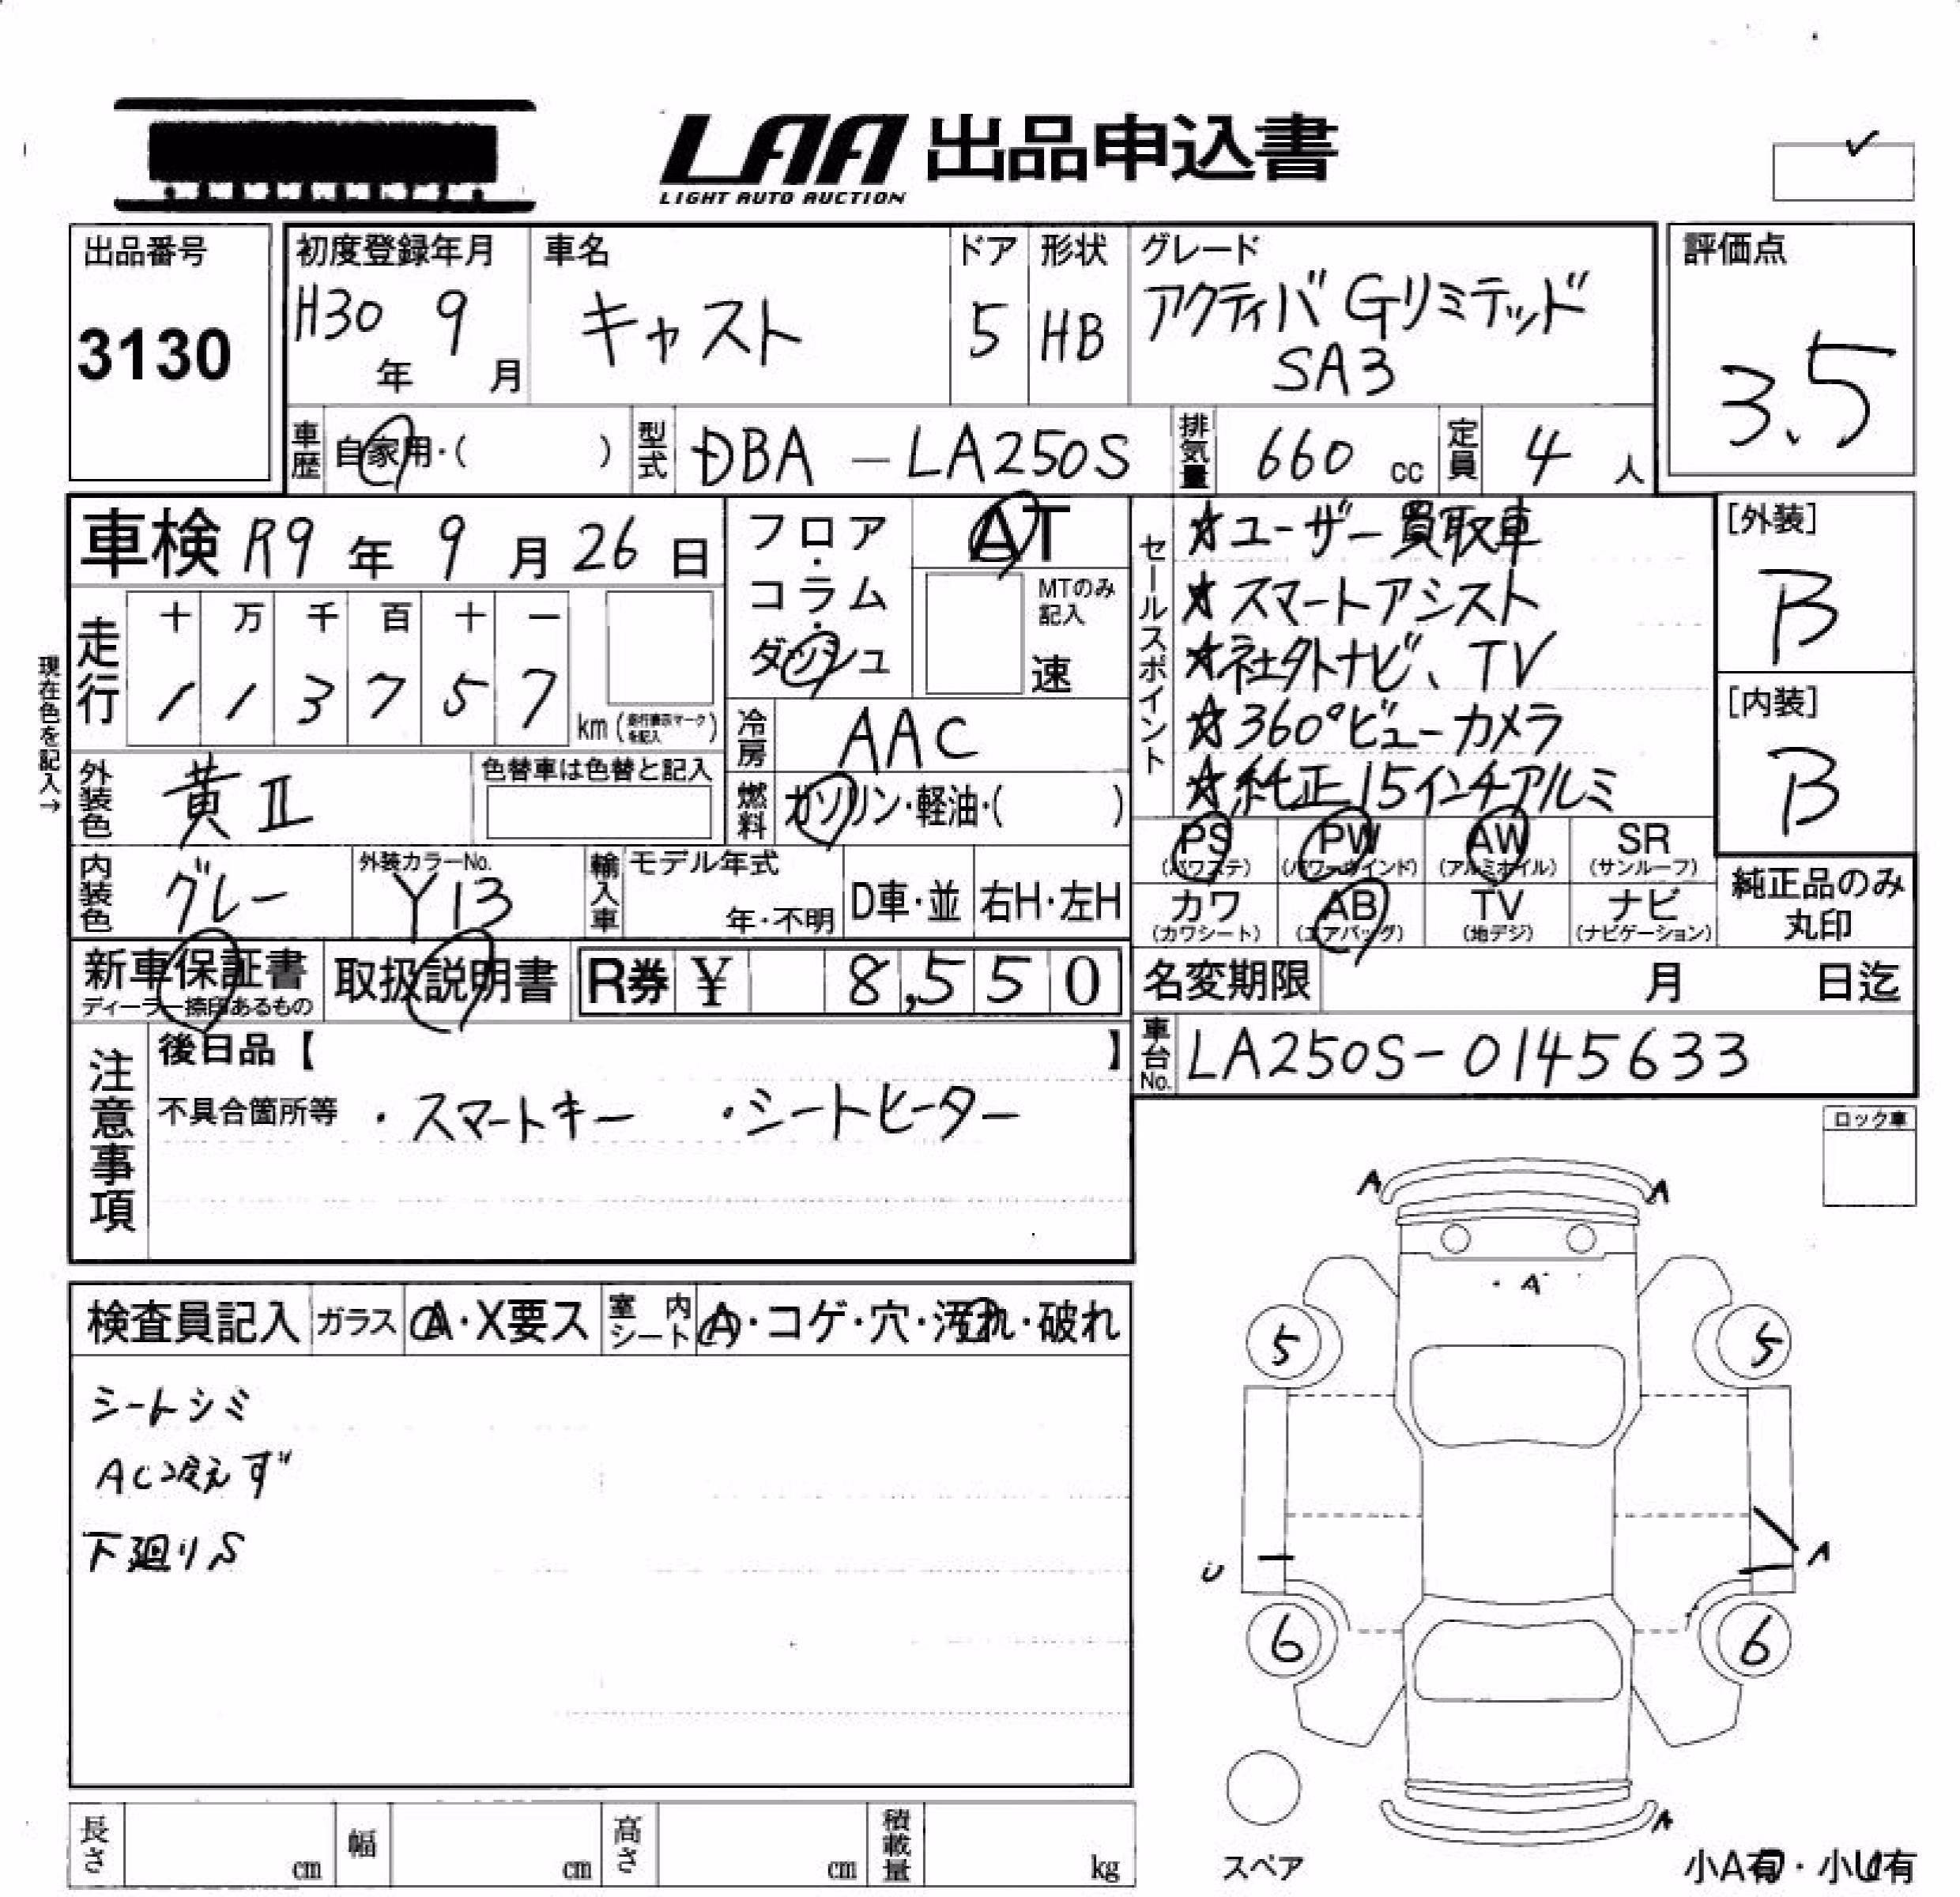 LAA 出品申込書
LIGHT AUTO AUCTION
出品番号
3130
初度登録年月
H30年 9月
車名
キャスト
ドア
5
形状
HB
グレード
アクティバ Gリミテッド
SA3
評価点
3.5
車歴 自家用・( )
型式 DBA-LA250S
排気量 660 cc
定員 4 人
車検 R9年 9月 26日
走行
十 万 千 百 十 一
1 1 3 7 5 7 km (走行表示マークを記入)
現在色を記入→
外装色 黄II
色替車は色替と記入
内装色 グレー
外装カラーNo.
Y13
フロア・コラム・ダッシュ
AT
MTのみ記入
速
冷房 AAC
燃料 ガソリン・軽油・( )
輸入車 モデル年式
年・不明
D車・並
右H・左H
セールスポイント
☆ユーザー買取車
☆スマートアシスト
☆社外ナビ、TV
☆360°ビューカメラ
☆純正15インチアルミ
[外装]
B
[内装]
B
PS (パワステ)
PW (パワーウインド)
AW (アルミホイル)
SR (サンルーフ)
カワ (カワシート)
AB (エアバッグ)
TV (地デジ)
ナビ (ナビゲーション)
純正品のみ丸印
新車保証書
ディーラー捺印あるもの
取扱説明書
R券 ¥ 8,550
名変期限 月 日迄
車台No. LA250S-0145633
注意事項
後日品【 】
不具合箇所等 ・スマートキー ・シートヒーター
ロック車
検査員記入
ガラス A・X要ス
室内シート A・コゲ・穴・汚れ・破れ
シートシミ
AC冷えず
下廻りS
A A
A
5 5
U A
6 6
A
スペア
小A有・小U有
長さ cm
幅 cm
高さ cm
積載量 kg